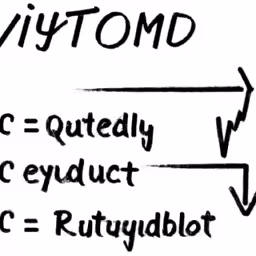 viyTOMD
C = Qutedly
C eyuduct
C = Rutuyıdblot